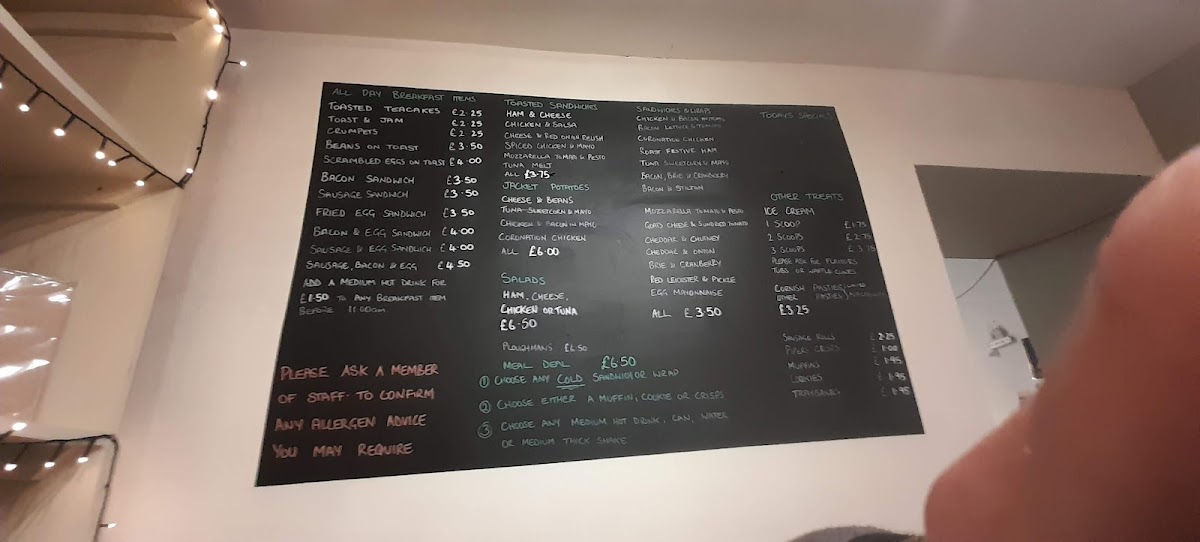 ALL DAY BREAKFAST ITEMS
TOASTED TEACAKES £2.25
TOAST & JAM £2.25
CRUMPETS £2.25
BEANS ON TOAST £3.50
SCRAMBLED EGGS ON TOAST £4.00
BACON SANDWICH £3.50
SAUSAGE SANDWICH £3.50
FRIED EGG SANDWICH £3.50
BACON & EGG SANDWICH £4.00
SAUSAGE & EGG SANDWICH £4.00
SAUSAGE, BACON & EGG £4.50
ADD A MEDIUM HOT DRINK FOR
£1.50 TO ANY BREAKFAST ITEM
BEFORE 11:00am
PLEASE ASK A MEMBER
OF STAFF TO CONFIRM
ANY ALLERGEN ADVICE
YOU MAY REQUIRE
TOASTED SANDWICHES
HAM & CHEESE
CHICKEN & SALSA
CHEESE & RED ONION RELISH
SPICED CHICKEN & MAYO
MOZZARELLA TOMATO & PESTO
TUNA MELT
ALL £3.75
JACKET POTATOES
CHEESE & BEANS
TUNA SWEETCORN & MAYO
CHICKEN & BACON IN MAYO
CORONATION CHICKEN
ALL £6.00
SALADS
HAM, CHEESE,
CHICKEN OR TUNA
£6.50
PLOUGHMANS £6.50
MEAL DEAL £6.50
① CHOOSE ANY COLD SANDWICH OR WRAP
② CHOOSE EITHER A MUFFIN, COOKIE OR CRISPS
③ CHOOSE ANY MEDIUM HOT DRINK, CAN, WATER
OR MEDIUM THICK SHAKE
SANDWICHES & WRAPS
CHICKEN & BACON IN MAYO
BACON LETTUCE & TOMATO
CORONATION CHICKEN
ROAST FESTIVE HAM
TUNA SWEETCORN & MAYO
BACON, BRIE & CRANBERRY
BACON & STILTON
MOZZARELLA TOMATO & PESTO
GOATS CHEESE & SUNDRIED TOMATO
CHEDDAR & CHUTNEY
CHEDDAR & ONION
BRIE & CRANBERRY
RED LEICESTER & PICKLE
EGG MAYONNAISE
ALL £3.50
TODAYS SPECIALS
OTHER TREATS
ICE CREAM
1 SCOOP £1.75
2 SCOOPS £2.75
3 SCOOPS £3.75
PLEASE ASK FOR FLAVOURS
TUBS OR WAFFLE CONES
CORNISH PASTIES/
OTHER PASTIES
£3.25
SAUSAGE ROLLS £2.25
CRISPS £1.00
MUFFINS £1.95
COOKIES £1.95
TRAYBAKES £1.95